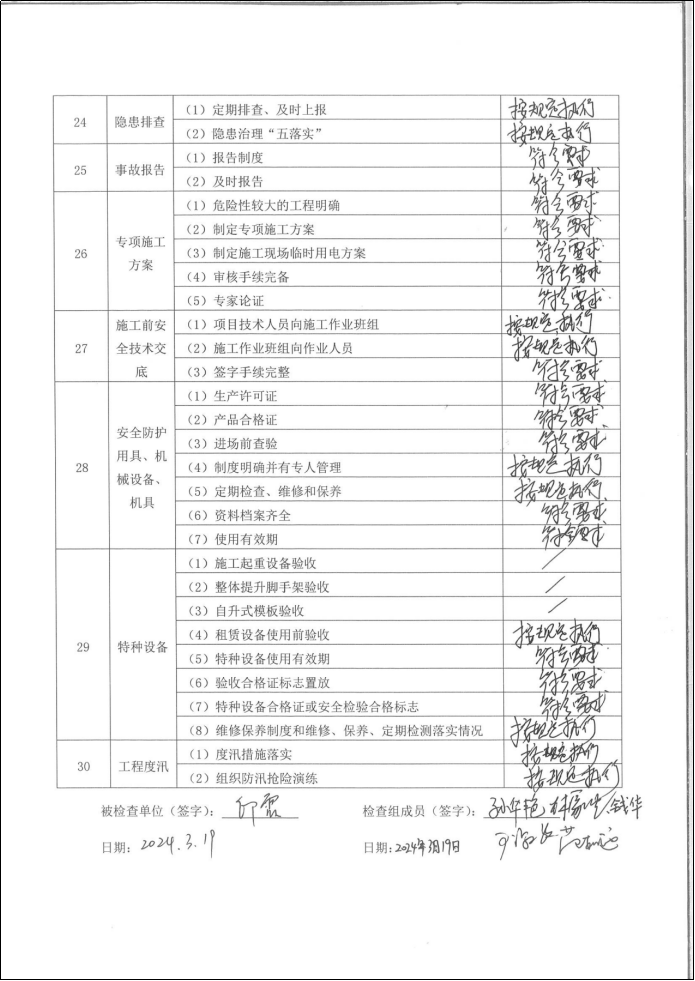 24 隐患排查 （1）定期排查、及时上报 按规定执行
（2）隐患治理“五落实” 按规定执行
25 事故报告 （1）报告制度 符合要求
（2）及时报告 符合要求
26 专项施工方案 （1）危险性较大的工程明确 符合要求
（2）制定专项施工方案 符合要求
（3）制定施工现场临时用电方案 符合要求
（4）审核手续完备 符合要求
（5）专家论证 符合要求
27 施工前安全技术交底 （1）项目技术人员向施工作业班组 按规定执行
（2）施工作业班组向作业人员 按规定执行
（3）签字手续完整 符合要求
28 安全防护用具、机械设备、机具 （1）生产许可证 符合要求
（2）产品合格证 符合要求
（3）进场前查验 符合要求
（4）制度明确并有专人管理 按规定执行
（5）定期检查、维修和保养 按规定执行
（6）资料档案齐全 符合要求
（7）使用有效期 符合要求
29 特种设备 （1）施工起重设备验收 /
（2）整体提升脚手架验收 /
（3）自升式模板验收 /
（4）租赁设备使用前验收 按规定执行
（5）特种设备使用有效期 符合要求
（6）验收合格证标志置放 符合要求
（7）特种设备合格证或安全检验合格标志 符合要求
（8）维修保养制度和维修、保养、定期检测落实情况 按规定执行
30 工程度汛 （1）度汛措施落实 按规定执行
（2）组织防汛抢险演练 按规定执行
被检查单位（签字）： 检查组成员（签字）：
日期：2024.3.19 日期：2024年3月19日